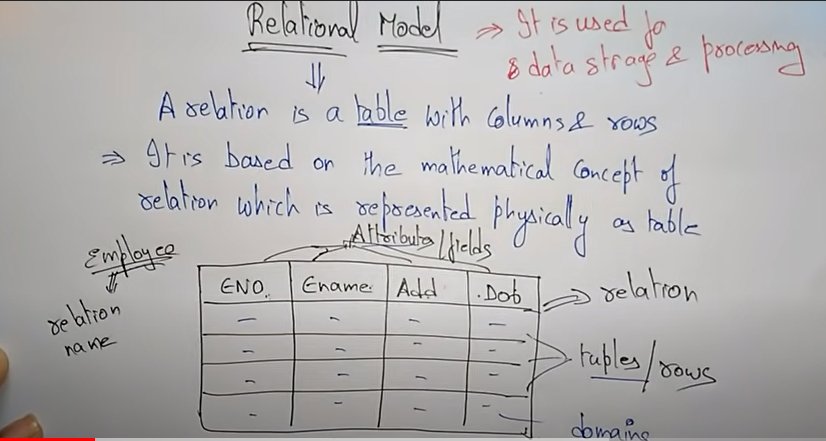 Relational Model ⇒ It is used fo
& data strage & processing
⇓
A relation is a table with columns & rows
⇒ It is based on the mathematical concept of
relation which is represented physically as table
Attributes/fields
Employee
⇓
relation
name
ENO. Ename. Add .Dob
⇒ relation
tuples/rows
domains